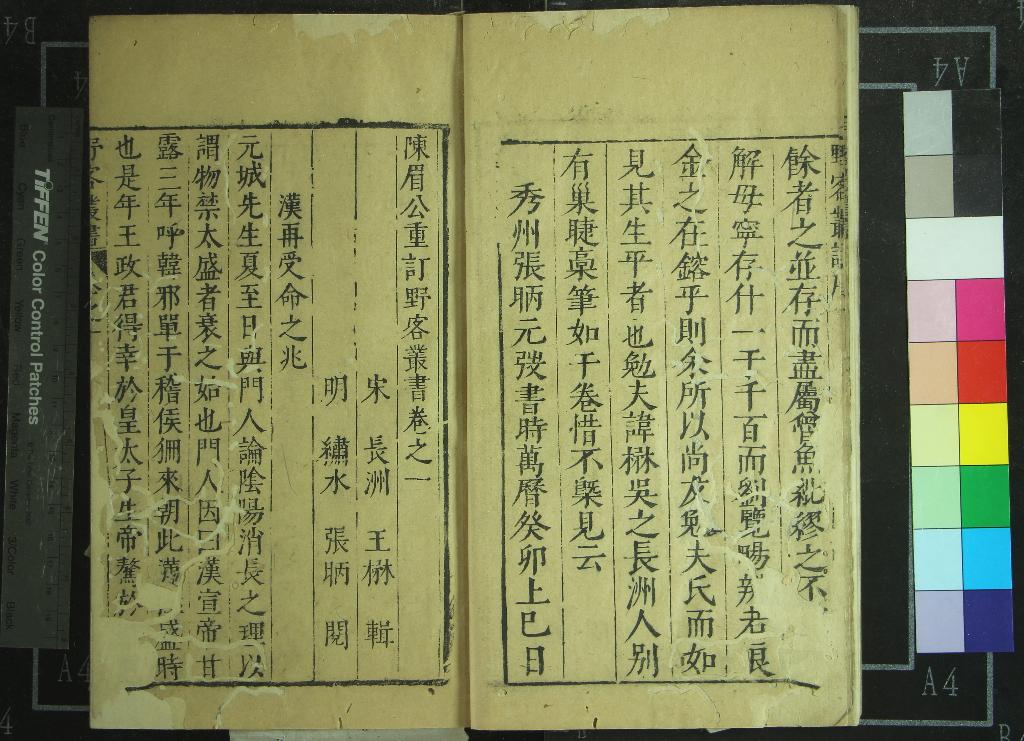 餘者之並存而盡屬魯魚紕繆之不
解毋寧存什一千千百而劉覽暢辨者良
金之在鎔乎則余所以尚友勉夫氏而如
見其生平者也勉夫諱楙吳之長洲人別
有巢睫稾筆如干卷惜不槩見云
秀州張昞元弢書時萬曆癸卯上巳日
陳眉公重訂野客叢書卷之一
宋 長洲 王楙 輯
明 繡水 張昞 閱
漢再受命之兆
元城先生夏至日與門人論陰陽消長之理以
謂物禁太盛者衰之始也門人因曰漢宣帝甘
露三年呼韓邪單于稽侯狦來朝此漢盛時
也是年王政君得幸於皇太子生帝驁於
野客叢書
TIFFEN Color Control Patches
A4
A4
A4
B4